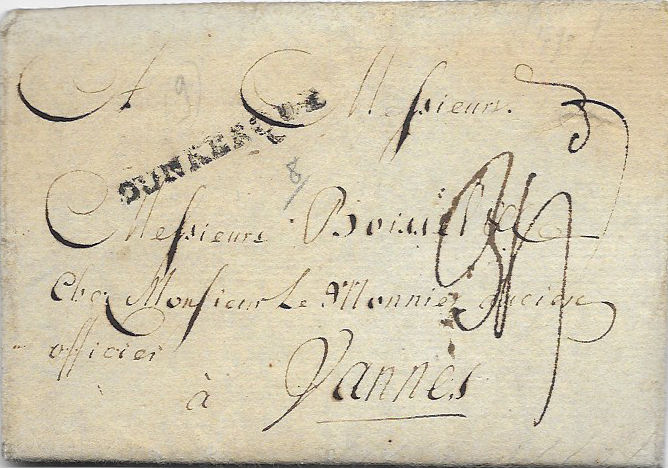 A Messieurs
9
DUNKERQUE
8
Messieurs Boissel &
Chez Monsieur Le Monnier ancien
officier
à Vannès